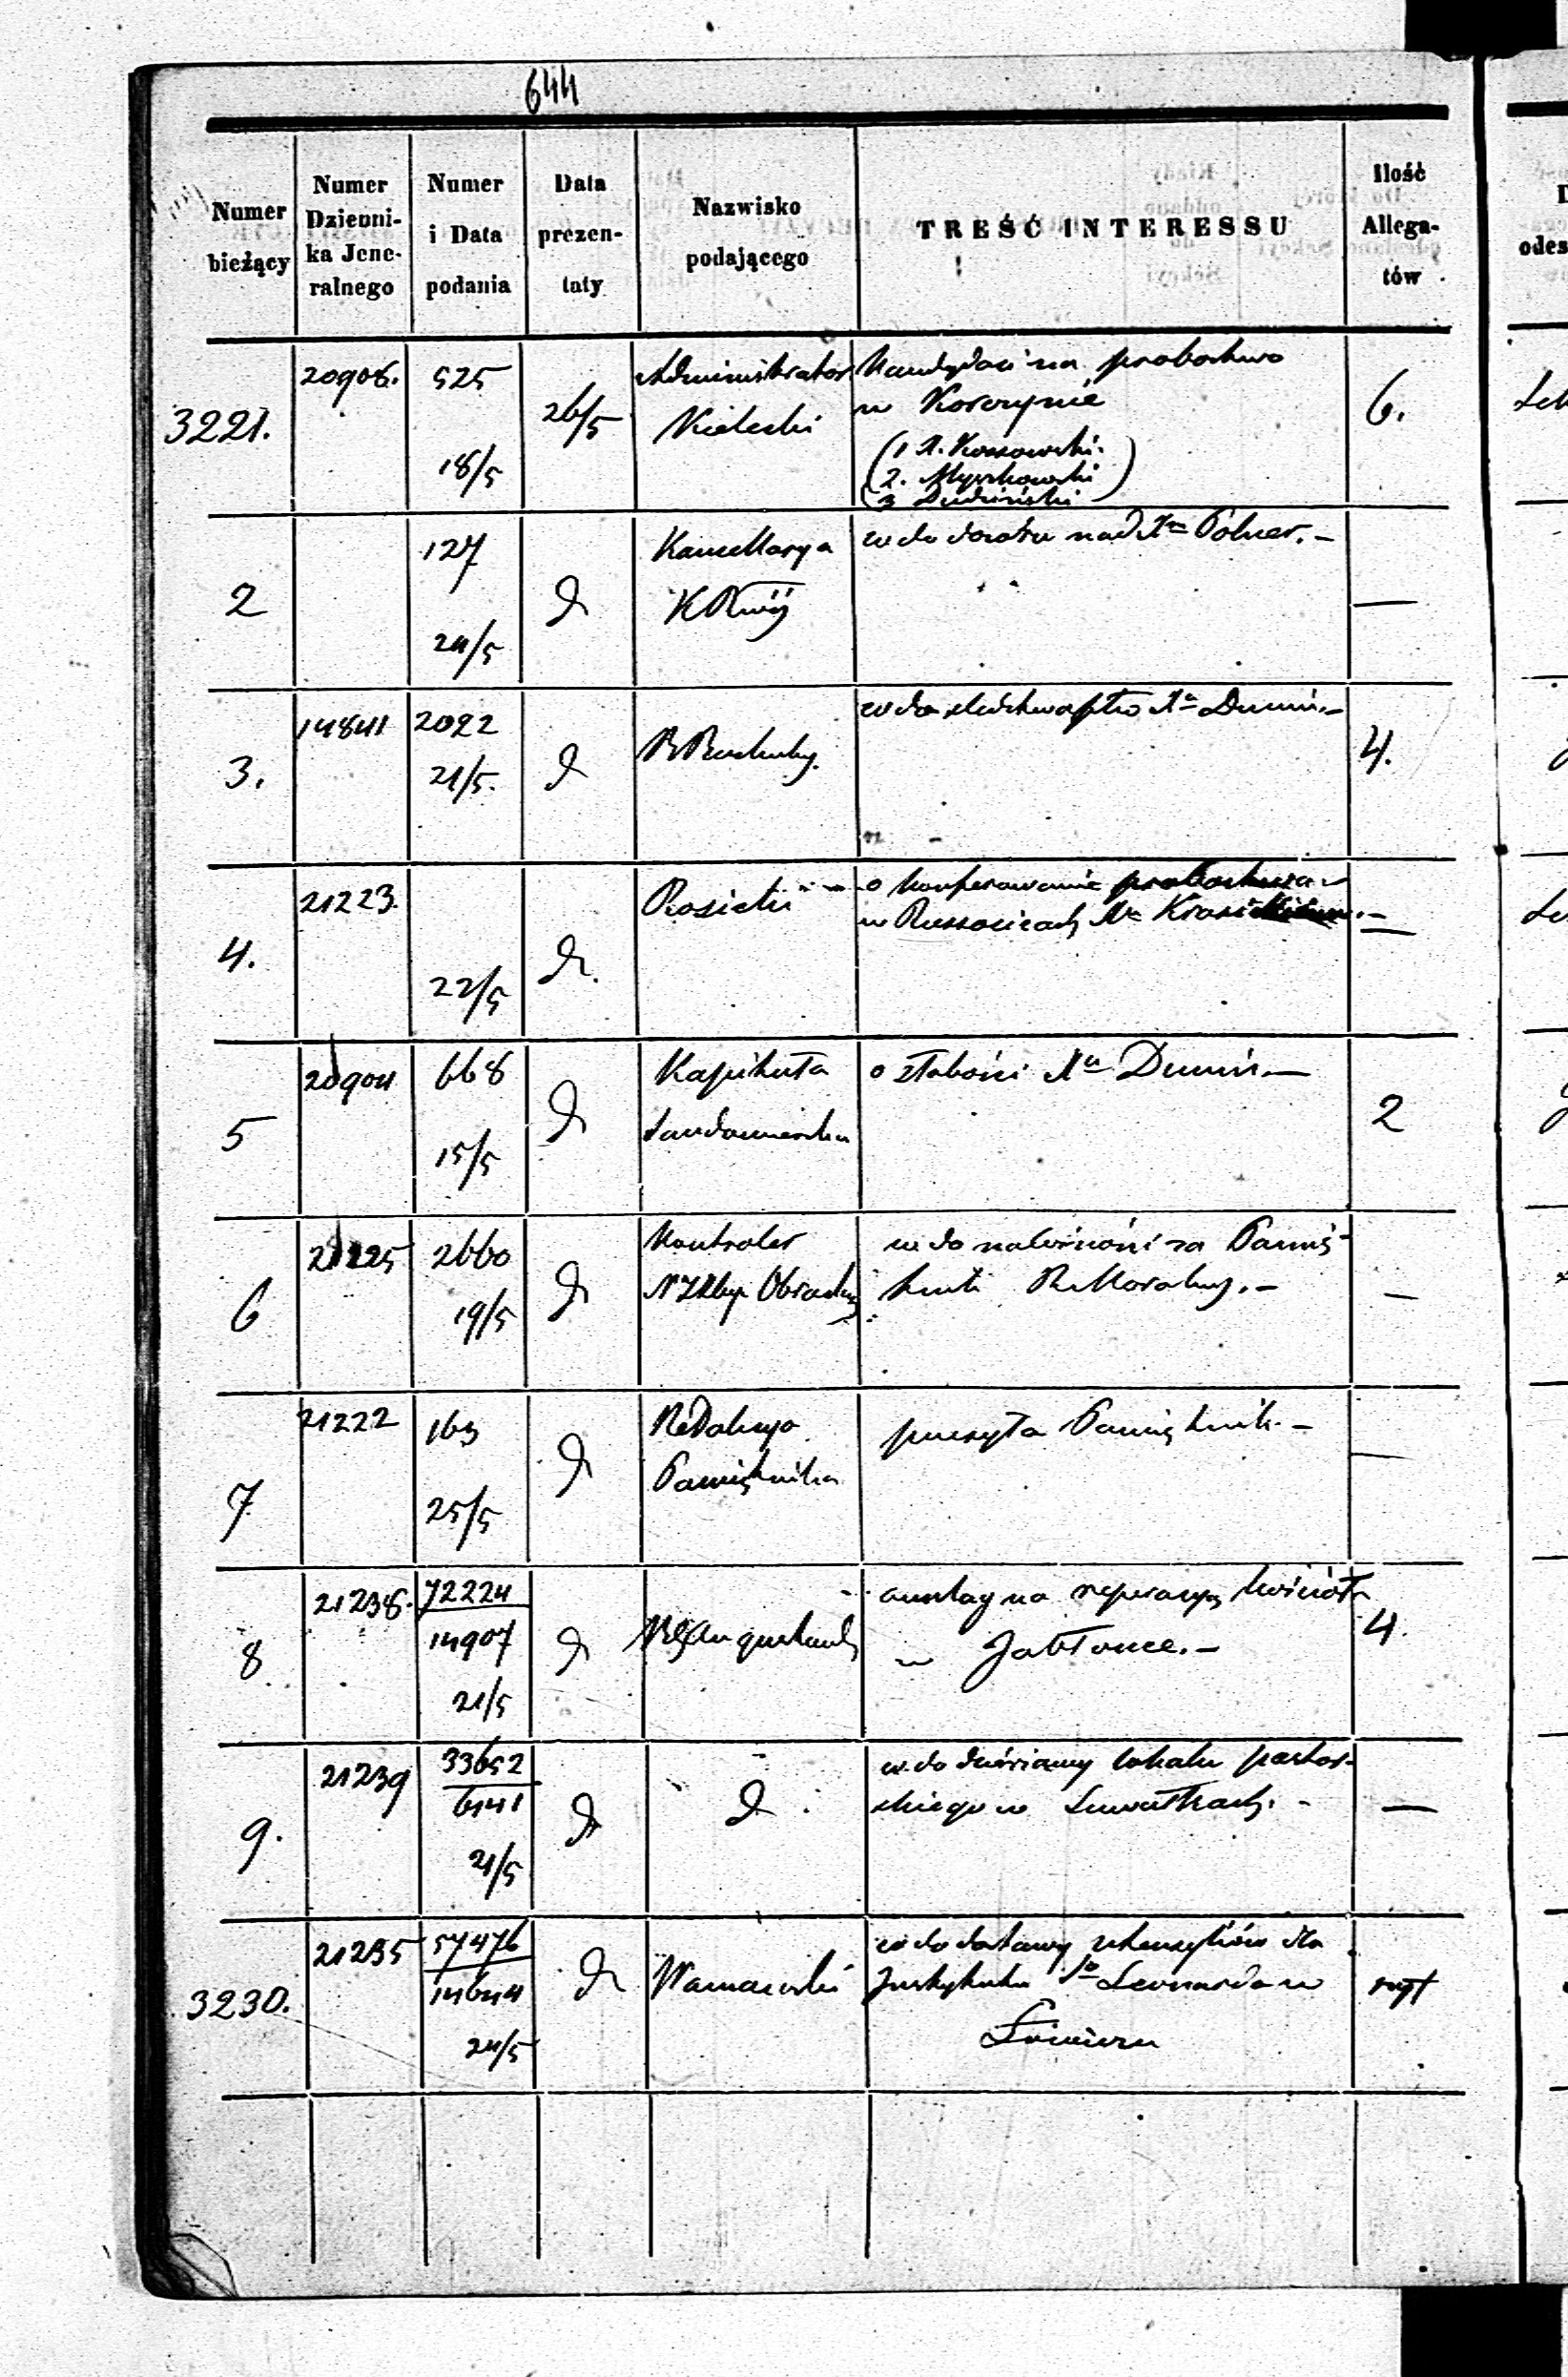 644
Numer bieżący
Numer Dziennika Jeneralnego
Numer i Data podania
Data prezentaty
Nazwisko podającego
TREŚĆ INTERESSU
Ilość Allegatów
3221. 20908. 525 18/5 26/5 Administrator Kielecki
Kandydaci na probostwo
w Korczynie
(1 X. Kossowski.
2. Myszkowski
3 Dudziński)
6.
2 127 24/5 d Kancellarya
w do dozoru nad X
—
3. 14841 2022 21/5. d
w do śledztwa ptko Xa Dumin.—
4.
4. 21223. 22/5 d. Rosicki
o konferowanie probostwa
w Russocicach
—
5 20904 668 15/5 d Kapituła Sandomierska
o słabości Xa Dumin.—
2
6 21225 2660 19/5 d Kontroler
w do należności za Pamięt-
—
7 21222 163 25/5 d Redakcya Pamiętnika
przesyła Pamiętnik.—
—
8 21238. 72224 14907 21/5 d RG Augustowski
anszlag na reperacyę kościoła
w Jabłonce.—
4.
9. 21239 33652 6141 21/5 d d
w do dzierżawy lokalu pastor-
skiego w Suwałkach.—
—
3230. 21235 57476 14644 24/5 d Warszawski
w do dostawy utensyliów dla
Instytutu So Leonarda w
Łowiczu